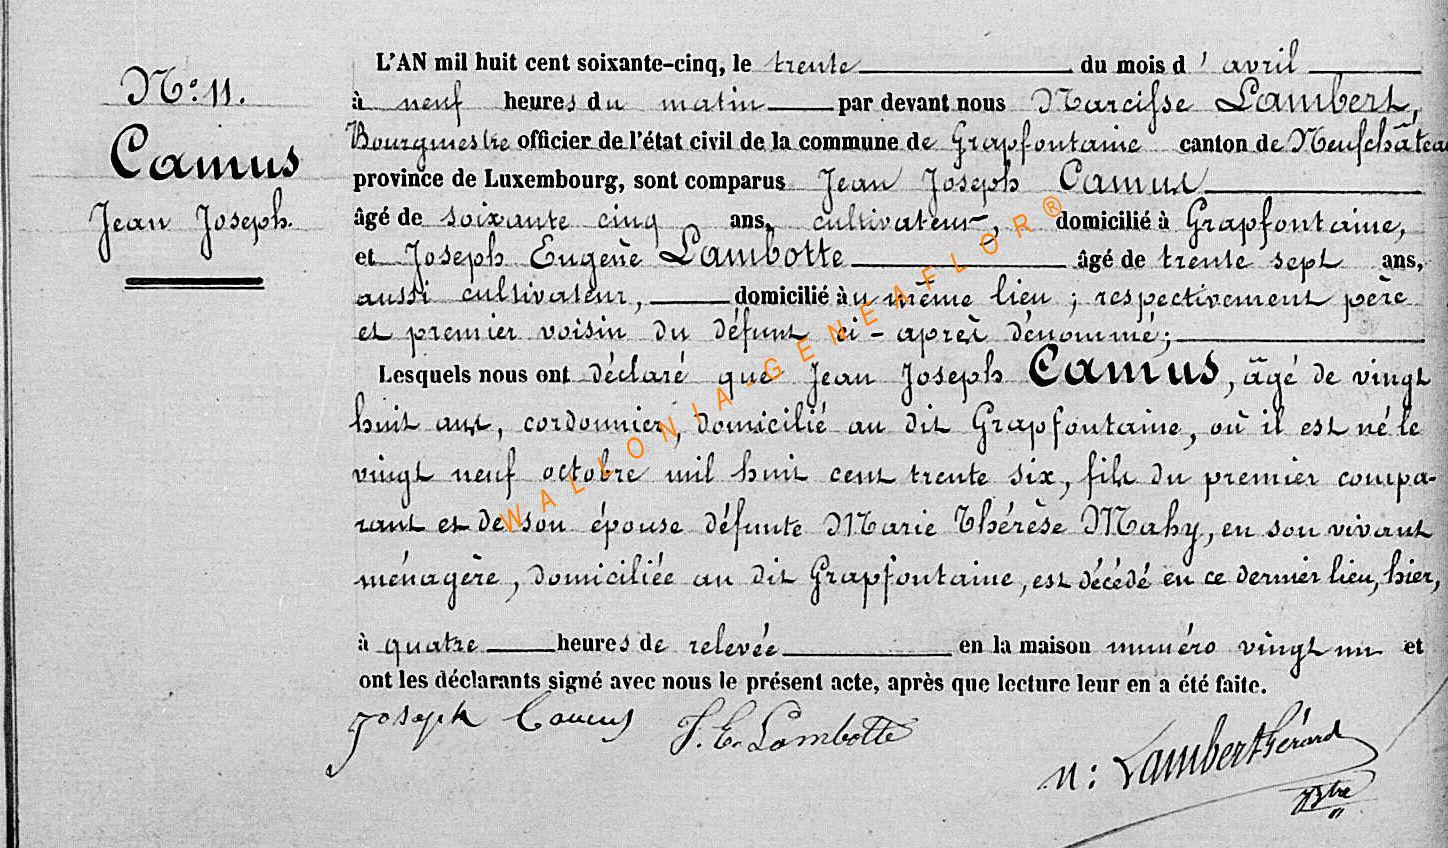 N° 11.
Camus
Jean Joseph.
L'AN mil huit cent soixante-cinq, le trente du mois d'avril
à neuf heures du matin par devant nous Narcisse Lambert,
Bourgmestre officier de l'état civil de la commune de Grapfontaine canton de Neufchâteau
province de Luxembourg, sont comparus Jean Joseph Camus
âgé de soixante cinq ans, cultivateur, domicilié à Grapfontaine,
et Joseph Eugène Lambotte âgé de trente sept ans,
aussi cultivateur, domicilié au même lieu ; respectivement père
et premier voisin du défunt ci-après dénommé ;
Lesquels nous ont déclaré que Jean Joseph Camus, âgé de vingt
huit ans, cordonnier, domicilié au dit Grapfontaine, où il est né le
vingt neuf octobre mil huit cent trente six, fils du premier compa-
rant et de son épouse défunte Marie Thérèse Mahy, en son vivant
ménagère, domiciliée au dit Grapfontaine, est décédé en ce dernier lieu, hier,
à quatre heures de relevée en la maison numéro vingt un et
ont les déclarants signé avec nous le présent acte, après que lecture leur en a été faite.
Joseph Camus J. E. Lambotte
N: Lambert Gérard
Bgtre
WALLONIA-GENEAFLOR®